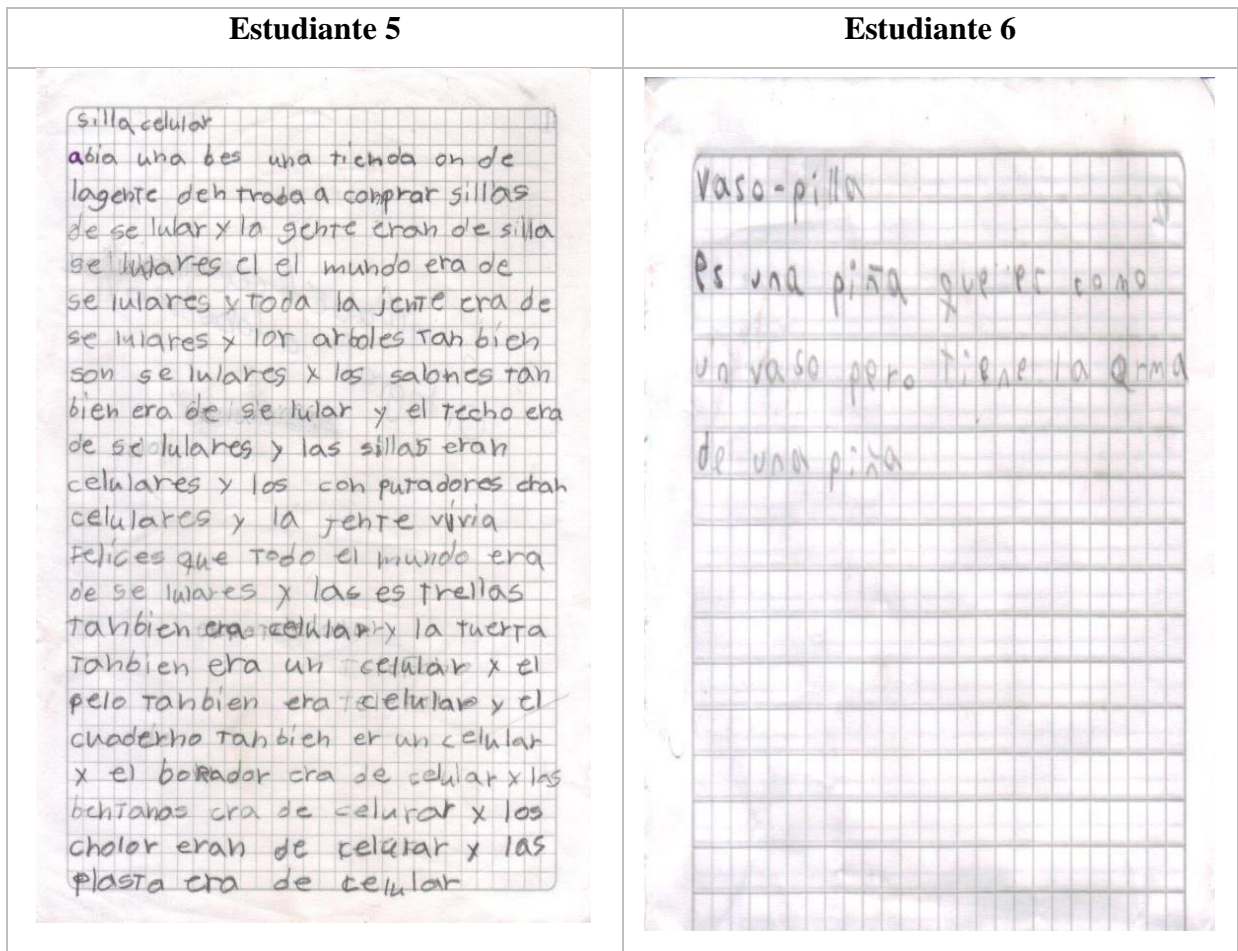 Estudiante 5
silla celular
abia una bes una tienda on de
lagente dentraba a conprar sillas
de se lular y la gente eran de silla
se lulares el el mundo era de
se lulares y toda la jente era de
se lulares y lor arboles tan bien
son se lulares y los salones tan
bien era de se lular y el techo era
de se lulares y las sillas eran
celulares y los con putadores eran
celulares y la jente vivia
felices que todo el mundo era
de se lulares y las es trellas
tanbien era celular y la
tanbien era un celular y el
pelo tanbien era celular y el
cuaderno tan bien er un celular
y el borador era de celular y las
bentanas era de celurar y los
era de celurar y las
plasta era de celular
Estudiante 6
vaso-pilla
es una piña que es como
un vaso pero tiene la
de una piña